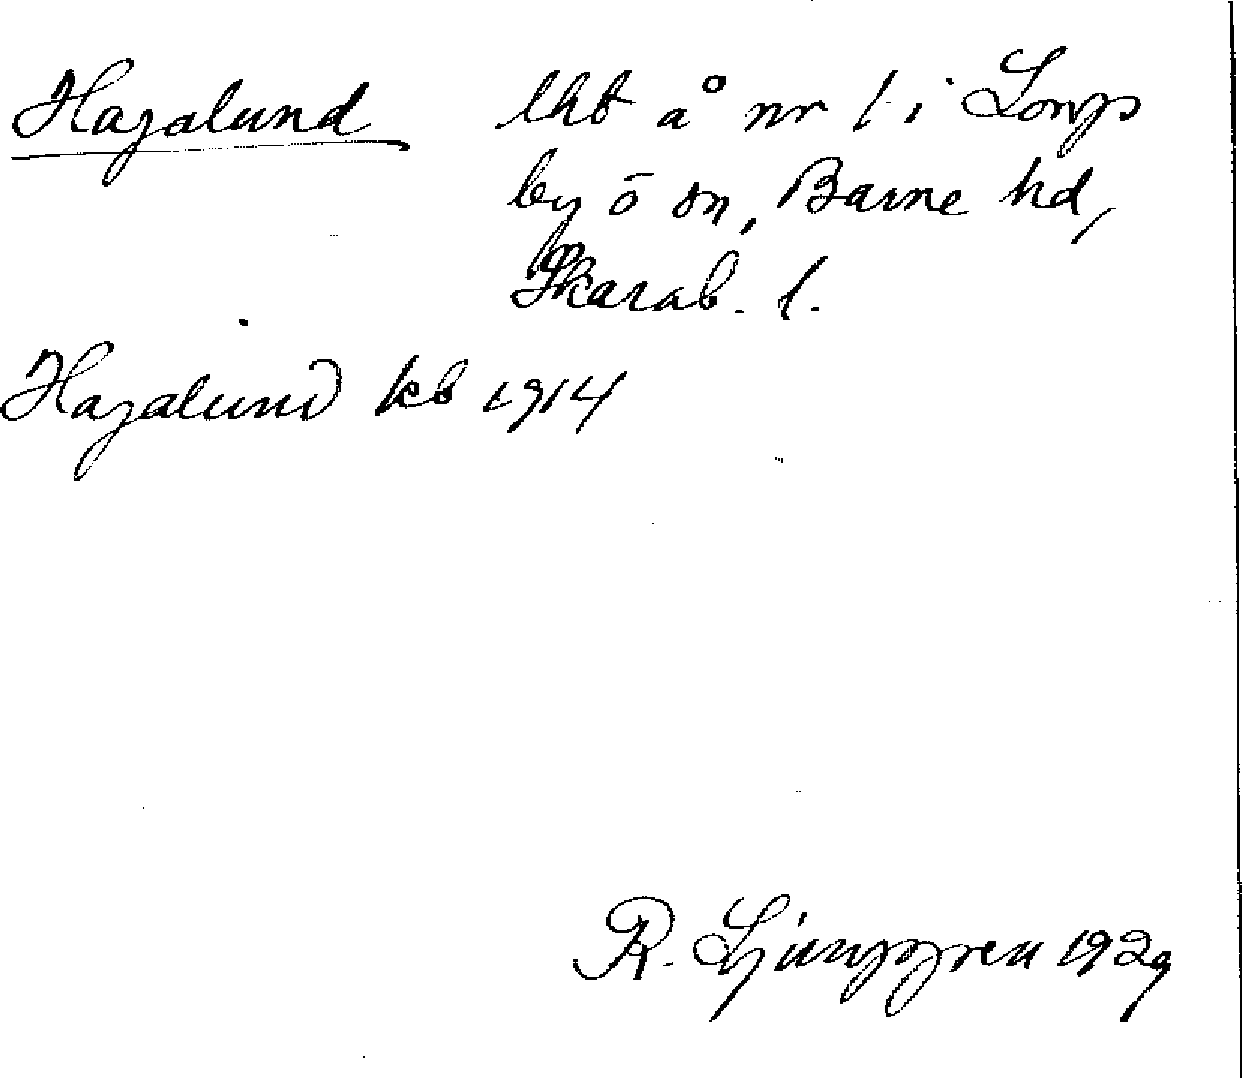 Hagalund lht å nr 1 i Longs
by o sn, Barne hd,
Skarab. l.
Hagalund kb 1914
R. Ljunggren 1929